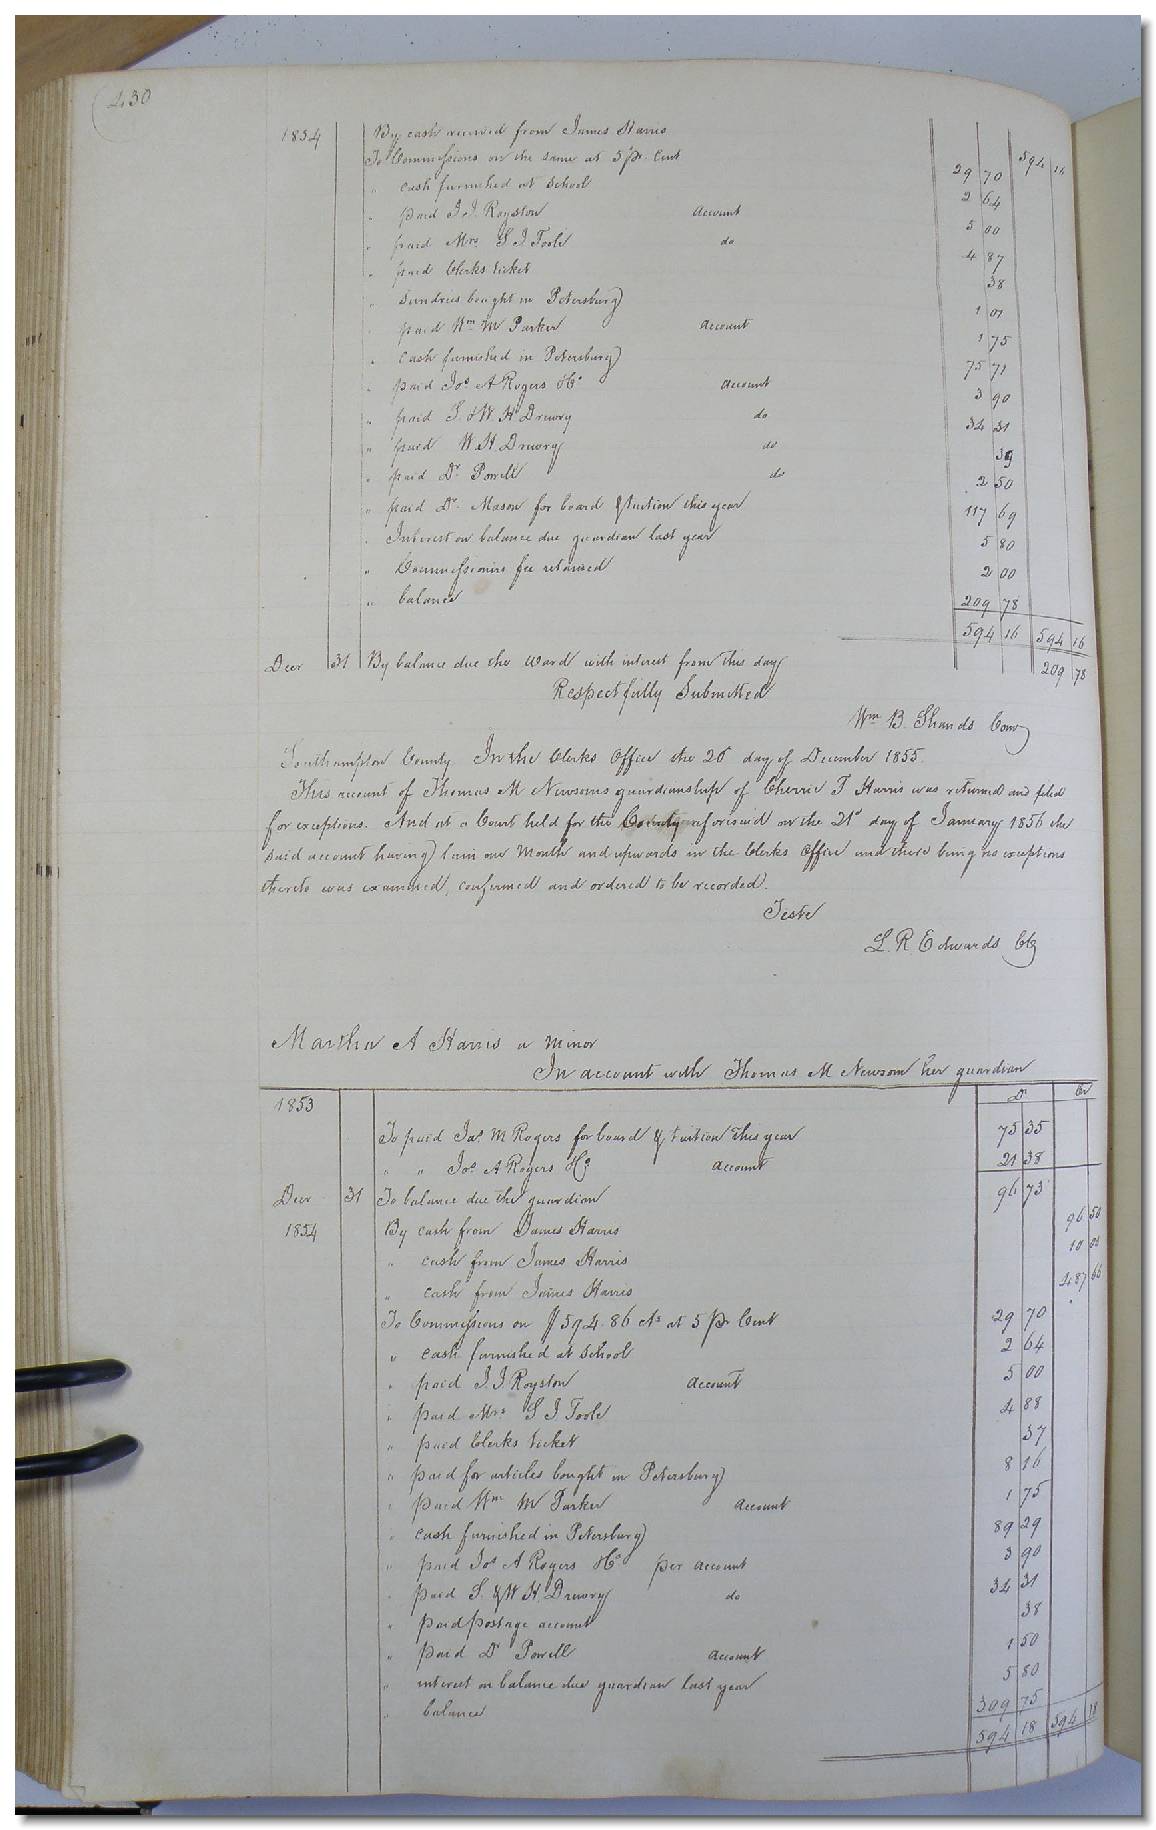 430
1854 By cash received from James Harris 594 16
To Commissions on the same at 5 pr. Cent 29 70
" cash furnished at School 2 64
" paid J. J. Royston Account 5 00
" paid Mrs S J Toole do 4 87
" paid Clerks ticket 38
" Sundries bought in Petersburg 1 01
" paid Wm M Parker Account 1 75
" cash furnished in Petersburg 75 71
" paid Jos A Rogers &Co account 3 90
" paid S. & W. H Drewry do 34 31
" paid W. H. Drewry do 39
" paid Dr. Powell do 2 50
" paid Dr. Mason for board & tuition this year 117 69
" Interest on balance due guardian last year 5 80
" Commissioners fee retained 2 00
" balance 209 78
594 16 594 16
Decr 31 By balance due the Ward with interest from this day 209 78
Respectfully Submitted
Wm B. Shands Comr
Southampton County. In the Clerks Office the 26 day of December 1855.
This account of Thomas M Newsoms guardianship of Cherrie T Harris was returned and filed
for exceptions. And at a Court held for the County aforesaid on the 21st day of January 1856 the
said account having lain one Month and upwards in the Clerks Office and there being no exceptions
thereto was examined, confirmed and ordered to be recorded.
Teste
L. R. Edwards Clk
Martha A Harris a Minor
In account with Thomas M Newsom her guardian
1853 Dr Cr
To paid Jas. M Rogers for board & tuition this year 75 35
" " Jos A Rogers &Co account 21 38
Decr 31 To balance due the guardian 96 73
1854 By cash from James Harris 96 50
" cash from James Harris 10 00
" cash from James Harris 487 68
To Commissions on $594.86 Cts at 5 pr Cent 29 70
" cash furnished at School 2 64
" paid J. J. Royston Account 5 00
" paid Mrs S J Toole 4 88
" paid Clerks ticket 37
" paid for articles bought in Petersburg 8 16
" paid Wm M Parker Account 1 75
" cash furnished in Petersburg 89 29
" paid Jos A Rogers &Co per account 3 90
" paid S. & W. H. Drewry do 34 31
" paid postage account 38
" paid Dr Powell account 1 50
" interest on balance due guardian last year 5 80
" balance 309 75
594 18 594 18